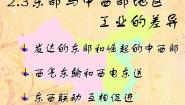 2.3东部与中西部地区
工业的差异
发达的东部和崛起的中西部
西气东输和西电东送
东西联动 互相促进